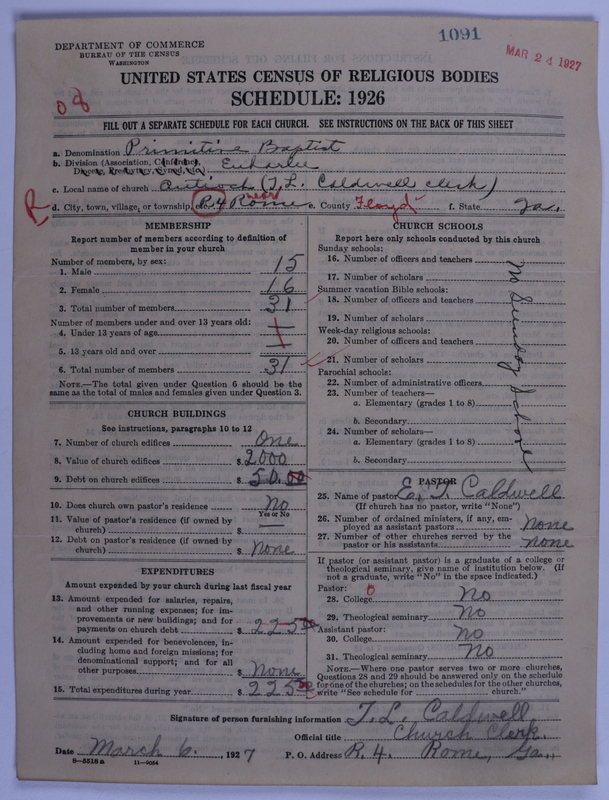 1091
MAR 24 1927
DEPARTMENT OF COMMERCE
BUREAU OF THE CENSUS
WASHINGTON
UNITED STATES CENSUS OF RELIGIOUS BODIES
SCHEDULE: 1926
08
FILL OUT A SEPARATE SCHEDULE FOR EACH CHURCH. SEE INSTRUCTIONS ON THE BACK OF THIS SHEET
a. Denomination Primitive Baptist
b. Division (Association, Conference, Diocese, Presbytery, Synod, etc.) Euharlee
c. Local name of church Antioch (T. L. Caldwell clerk)
R d. City, town, village, or township R.4 near Rome e. County Floyd f. State Ga.
MEMBERSHIP
Report number of members according to definition of member in your church
Number of members, by sex:
1. Male 15
2. Female 16
3. Total number of members 31
Number of members under and over 13 years old:
4. Under 13 years of age
5. 13 years old and over
6. Total number of members 31
NOTE.—The total given under Question 6 should be the same as the total of males and females given under Question 3.
CHURCH BUILDINGS
See instructions, paragraphs 10 to 12
7. Number of church edifices One
8. Value of church edifices $ 2000
9. Debt on church edifices $ 50.00
10. Does church own pastor's residence No
Yes or No
11. Value of pastor's residence (if owned by church) $ —
12. Debt on pastor's residence (if owned by church) $ None
EXPENDITURES
Amount expended by your church during last fiscal year
13. Amount expended for salaries, repairs, and other running expenses; for improvements or new buildings; and for payments on church debt $ 225 00
14. Amount expended for benevolences, including home and foreign missions; for denominational support; and for all other purposes $ None
15. Total expenditures during year $ 225 00
CHURCH SCHOOLS
Report here only schools conducted by this church
Sunday schools:
16. Number of officers and teachers
17. Number of scholars
Summer vacation Bible schools:
18. Number of officers and teachers
19. Number of scholars
Week-day religious schools:
20. Number of officers and teachers
21. Number of scholars
Parochial schools:
22. Number of administrative officers
23. Number of teachers—
a. Elementary (grades 1 to 8)
b. Secondary
24. Number of scholars—
a. Elementary (grades 1 to 8)
b. Secondary
No Sunday School
PASTOR
25. Name of pastor E. T. Caldwell
(If church has no pastor, write "None")
26. Number of ordained ministers, if any, employed as assistant pastors None
27. Number of other churches served by the pastor or his assistants None
If pastor (or assistant pastor) is a graduate of a college or theological seminary, give name of institution below. (If not a graduate, write "No" in the space indicated.)
Pastor: 0
28. College No
29. Theological seminary No
Assistant pastor:
30. College No
31. Theological seminary No
NOTE.—Where one pastor serves two or more churches, Questions 28 and 29 should be answered only on the schedule for one of the churches; on the schedules for the other churches, write "See schedule for ________ church."
Signature of person furnishing information T. L. Caldwell
Official title Church Clerk.
Date March 6., 1927 P. O. Address R. 4. Rome, Ga.,
8—5518a 11—9054